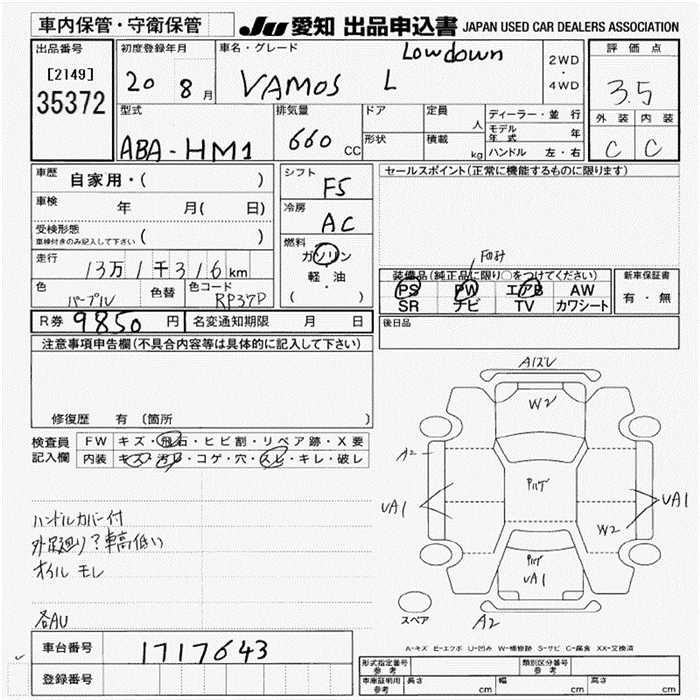 車内保管・守衛保管 JU 愛知 出品申込書 JAPAN USED CAR DEALERS ASSOCIATION
出品番号 初度登録年月 車名・グレード 2WD・4WD 評価点
[2149] 20 8月 VAMOS L Lowdown 3.5
35372
型式 排気量 ドア 定員 人 ディーラー・並行 外装 内装
ABA-HM1 660 CC 形状 積載 kg モデル年式 年 C C
ハンドル 左・右
車歴 自家用・( ) シフト F5 セールスポイント(正常に機能するものに限ります)
車検 年 月( 日) 冷房 AC
受検形態 ( )
車検付きのみ記入して下さい
燃料 ガソリン 軽・油 ( )
走行 13万1千316km
装備品(純正品に限り○をつけてください) 新車保証書
PS PW エアB AW 有・無
SR ナビ TV カワシート
色 パープル 色替 色コード RP37P
R券 9850円 名変通知期限 月 日 後日品
注意事項申告欄(不具合内容等は具体的に記入して下さい)
修復歴 有 [箇所 ]
検査員記入欄 FW キズ・飛石・ヒビ割・リペア跡・X要
内装 キズ・汚レ・コゲ・穴・スレ・キレ・破レ
A1ズレ
W2
A2
UA1 UA1
W2
UA1
A2
スペア
ハンドルカバー付
外足廻り?車高低い
オイルモレ
各AU
A-キズ E-エクボ U-凹み W-補修跡 S-サビ C-腐食 XX-交換済
車台番号 1717643
登録番号
形式指定番号 参考 類別区分番号 参考
車庫証明用 参考 長さ cm 幅 cm 高さ cm